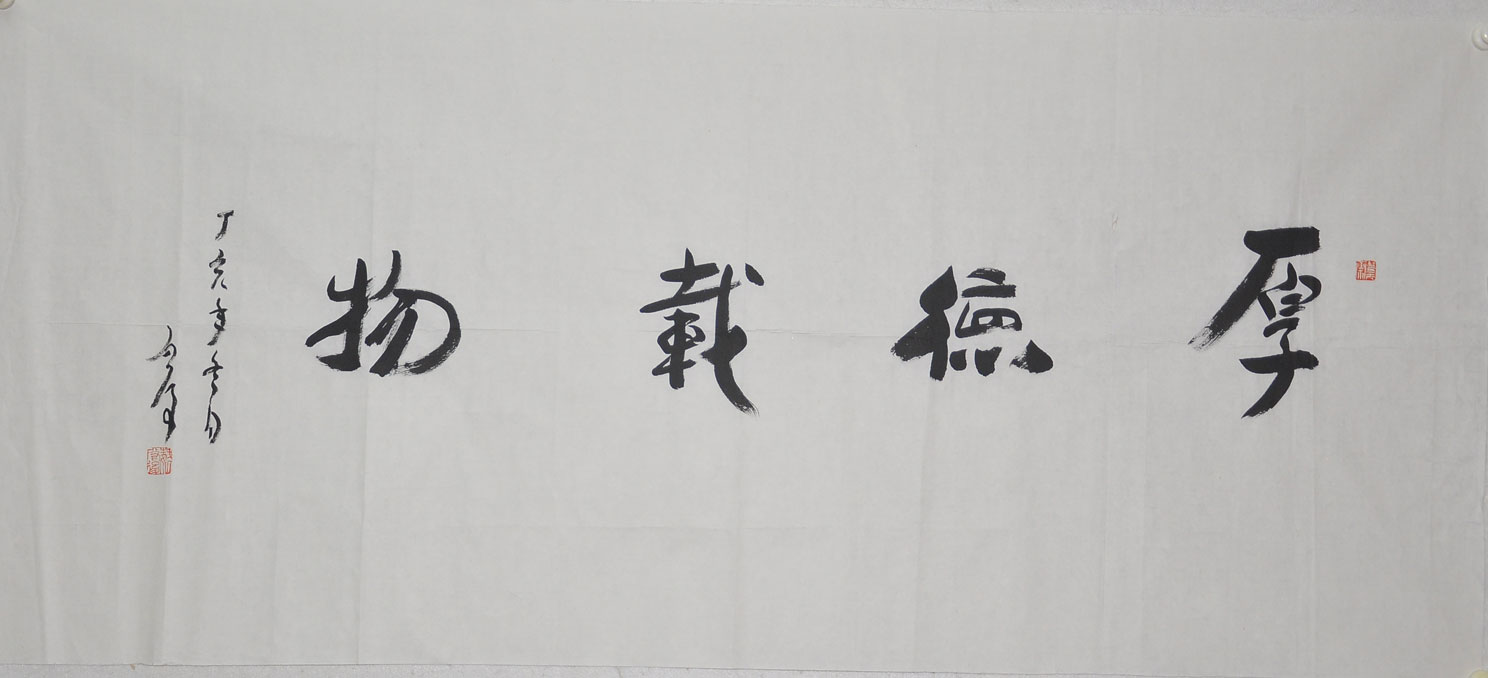 厚德载物
丁亥年冬月